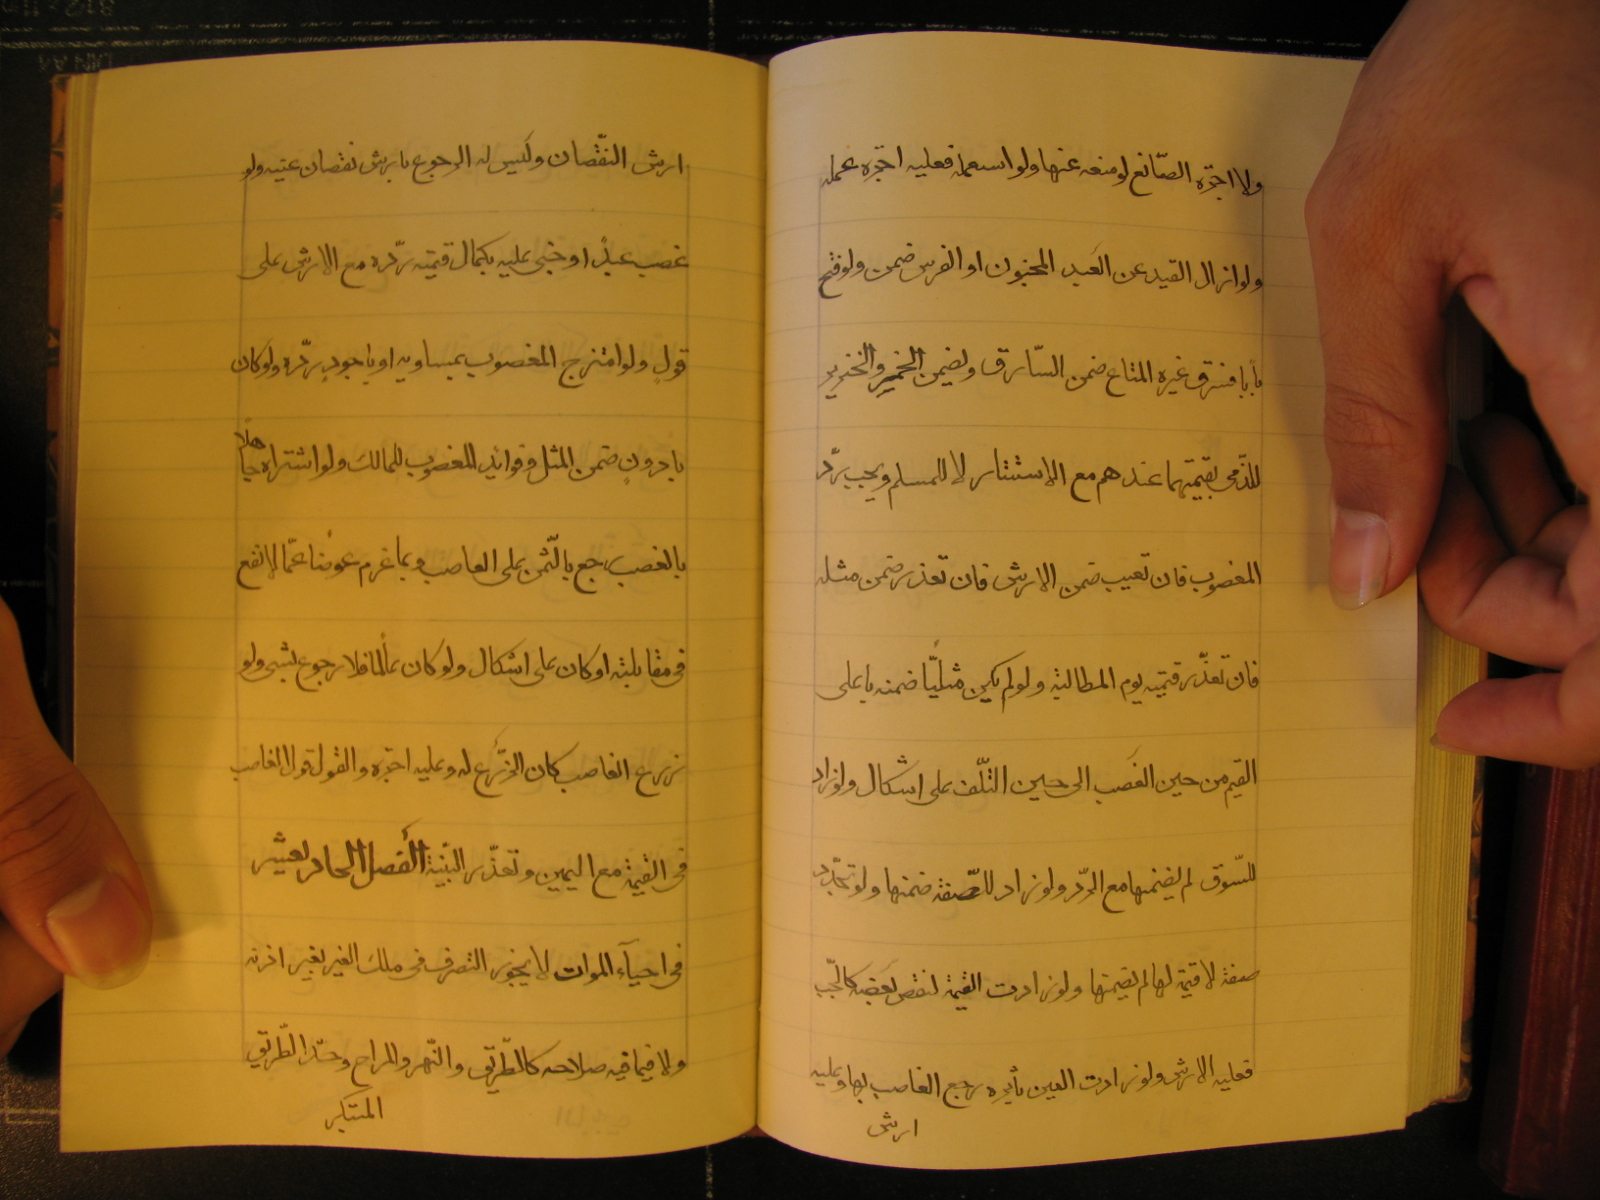 ولا اجرة الصّانع لو منعه عنها ولو استعمله فعليه اجرة عمله
ولو ازال القيد عن العَبد المجنون او الفرس ضمن ولو فتح
باباً فسرق غيره المتاع ضمن السّارق ويضمن الخمر والخنزير
للذّمى بقيمتهما عندهم مع الاستتار لا للمسلم ويجب ردّ
المغصوب فان تعيب ضمن الارش فان تعذر ضمن مثله
فان تعذّر قيمته يوم المطالبة ولو لم يكن مثليّا ضمنه باعلى
القيم من حين الغَصب الى حين التّلف على اشكال ولو زاد
للسّوق لم يضمنها مع الرّد ولو زاد للصّفة ضمنها ولو تجدّد
صفة لا قيمة لها لم يضمنها ولو زادت القيمة لنقص بَعضه كالجّب
فعليه الارش ولو زادت العين باثره رجع الغاصب بها وعليه
ارش
ارش النّقصان وليس له الرجوع بارش نقصان عينه ولو
غصب عبدًا و جنى عليه بكمال قيمته ردّه مع الارش على
قول ولو امتزج المغصوب بمساويه او باجود ردّه ولو كان
بادون ضمن المثل وفوائد المغصوب للمالك ولو اشتراه جاهلًا
بالغصب رجع بالثّمن على الغاصب وبما غرم عوضا عمّا لا نفع
فى مقابلته او كان على اشكال ولو كان عالما فلا رجوع بشىء ولو
زرع الغاصب كان الزّرع له وعليه اجرة والقول قول الغاصب
فى القيمة مع اليمين وتعذّر البيّنة الفصل الحادى عشر
فى احيآء الموات لا يجوز التصرف فى ملك الغير بغير اذنه
ولا فيما فيه صلاحه كالطّريق والنّهر والمراح وحدّ الطّريق
المبتكر